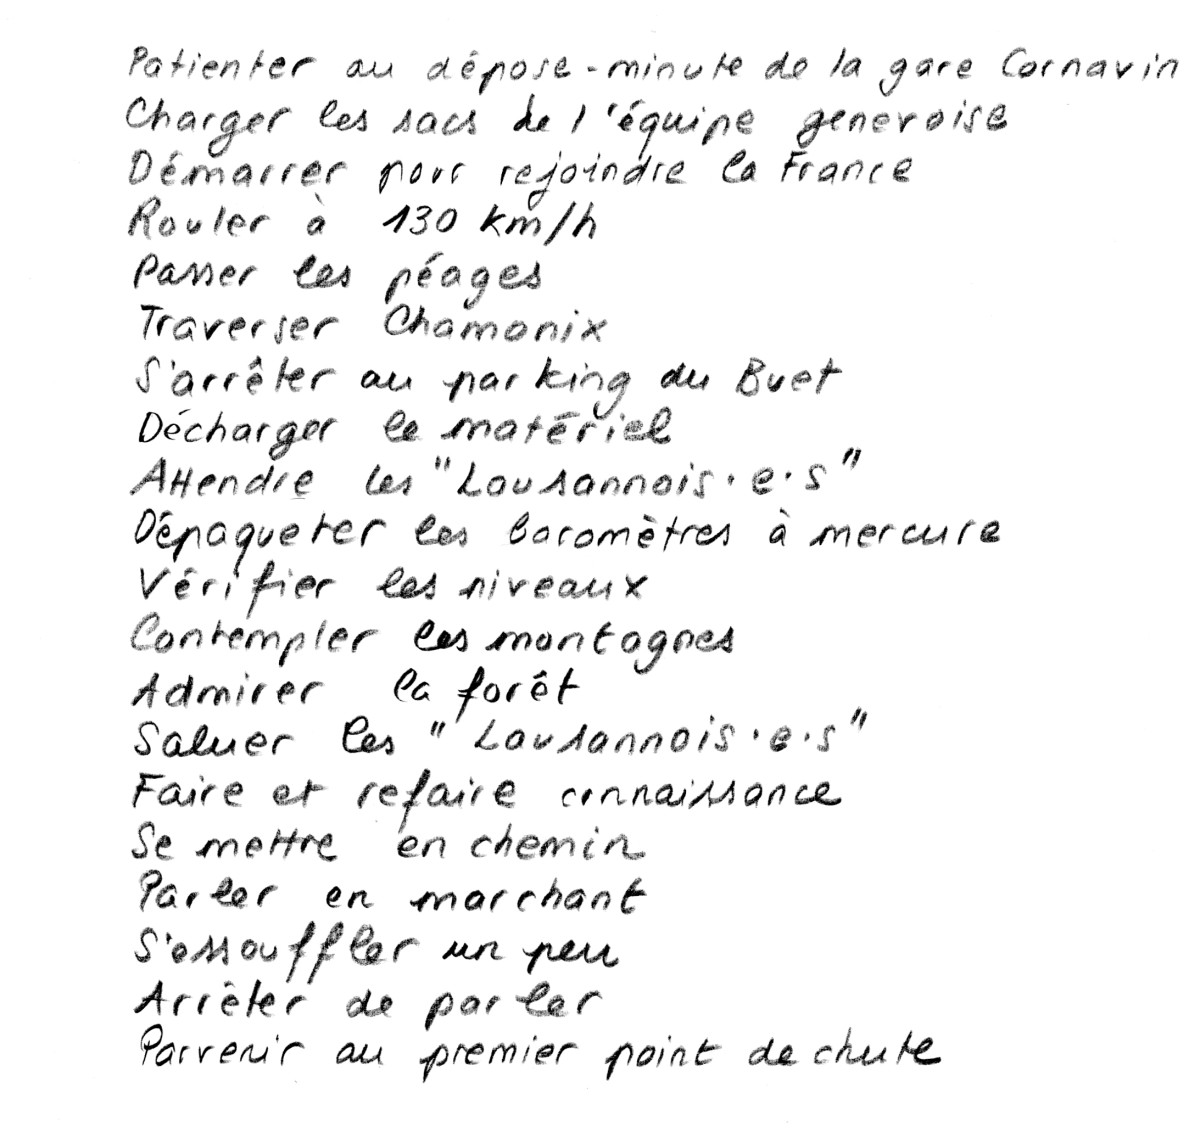 Patienter au dépose-minute de la gare Cornavin
Charger les sacs de l'équipe genevoise
Démarrer pour rejoindre la France
Rouler à 130 km/h
Passer les péages
Traverser Chamonix
S'arrêter au parking du Buet
Décharger le matériel
Attendre les "Lausannois·e·s"
Dépaqueter les baromètres à mercure
Vérifier les niveaux
Contempler les montagnes
Admirer la forêt
Saluer les "Lausannois·e·s"
Faire et refaire connaissance
Se mettre en chemin
Parler en marchant
S'essouffler un peu
Arrêter de parler
Parvenir au premier point de chute